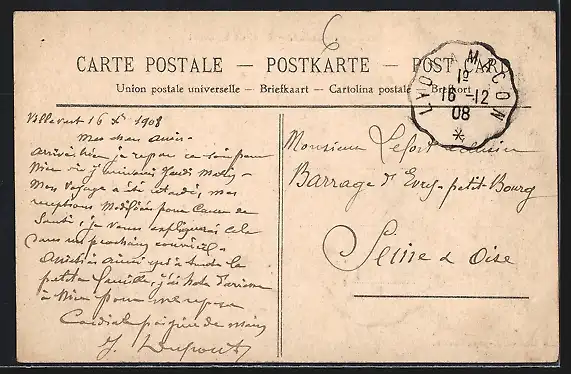 6
CARTE POSTALE — POSTKARTE — POST CARD
Union postale universelle — Briefkaart — Cartolina postale — Brefkort
LYON A MACON
1º
16 -12
08
Villevert 16 Xe 1908
Mes chers Amis
Arrivé hier je repars ce soir pour
Nice où j'arriverai Jeudi Matin
Mon Voyage a été retardé, mes
réceptions Modifiées pour Cause de
Santé, je vous expliquerai cela
dans un prochain courrier.
Amitiés ainsi qu'à toute la
petite famille, j'ai hâte d'arriver
à Nice pour me reposer
Cordiale poignée de main
J. Dupont
Monsieur Lefort éclusier
Barrage d'Evry-petit-Bourg
Seine & Oise